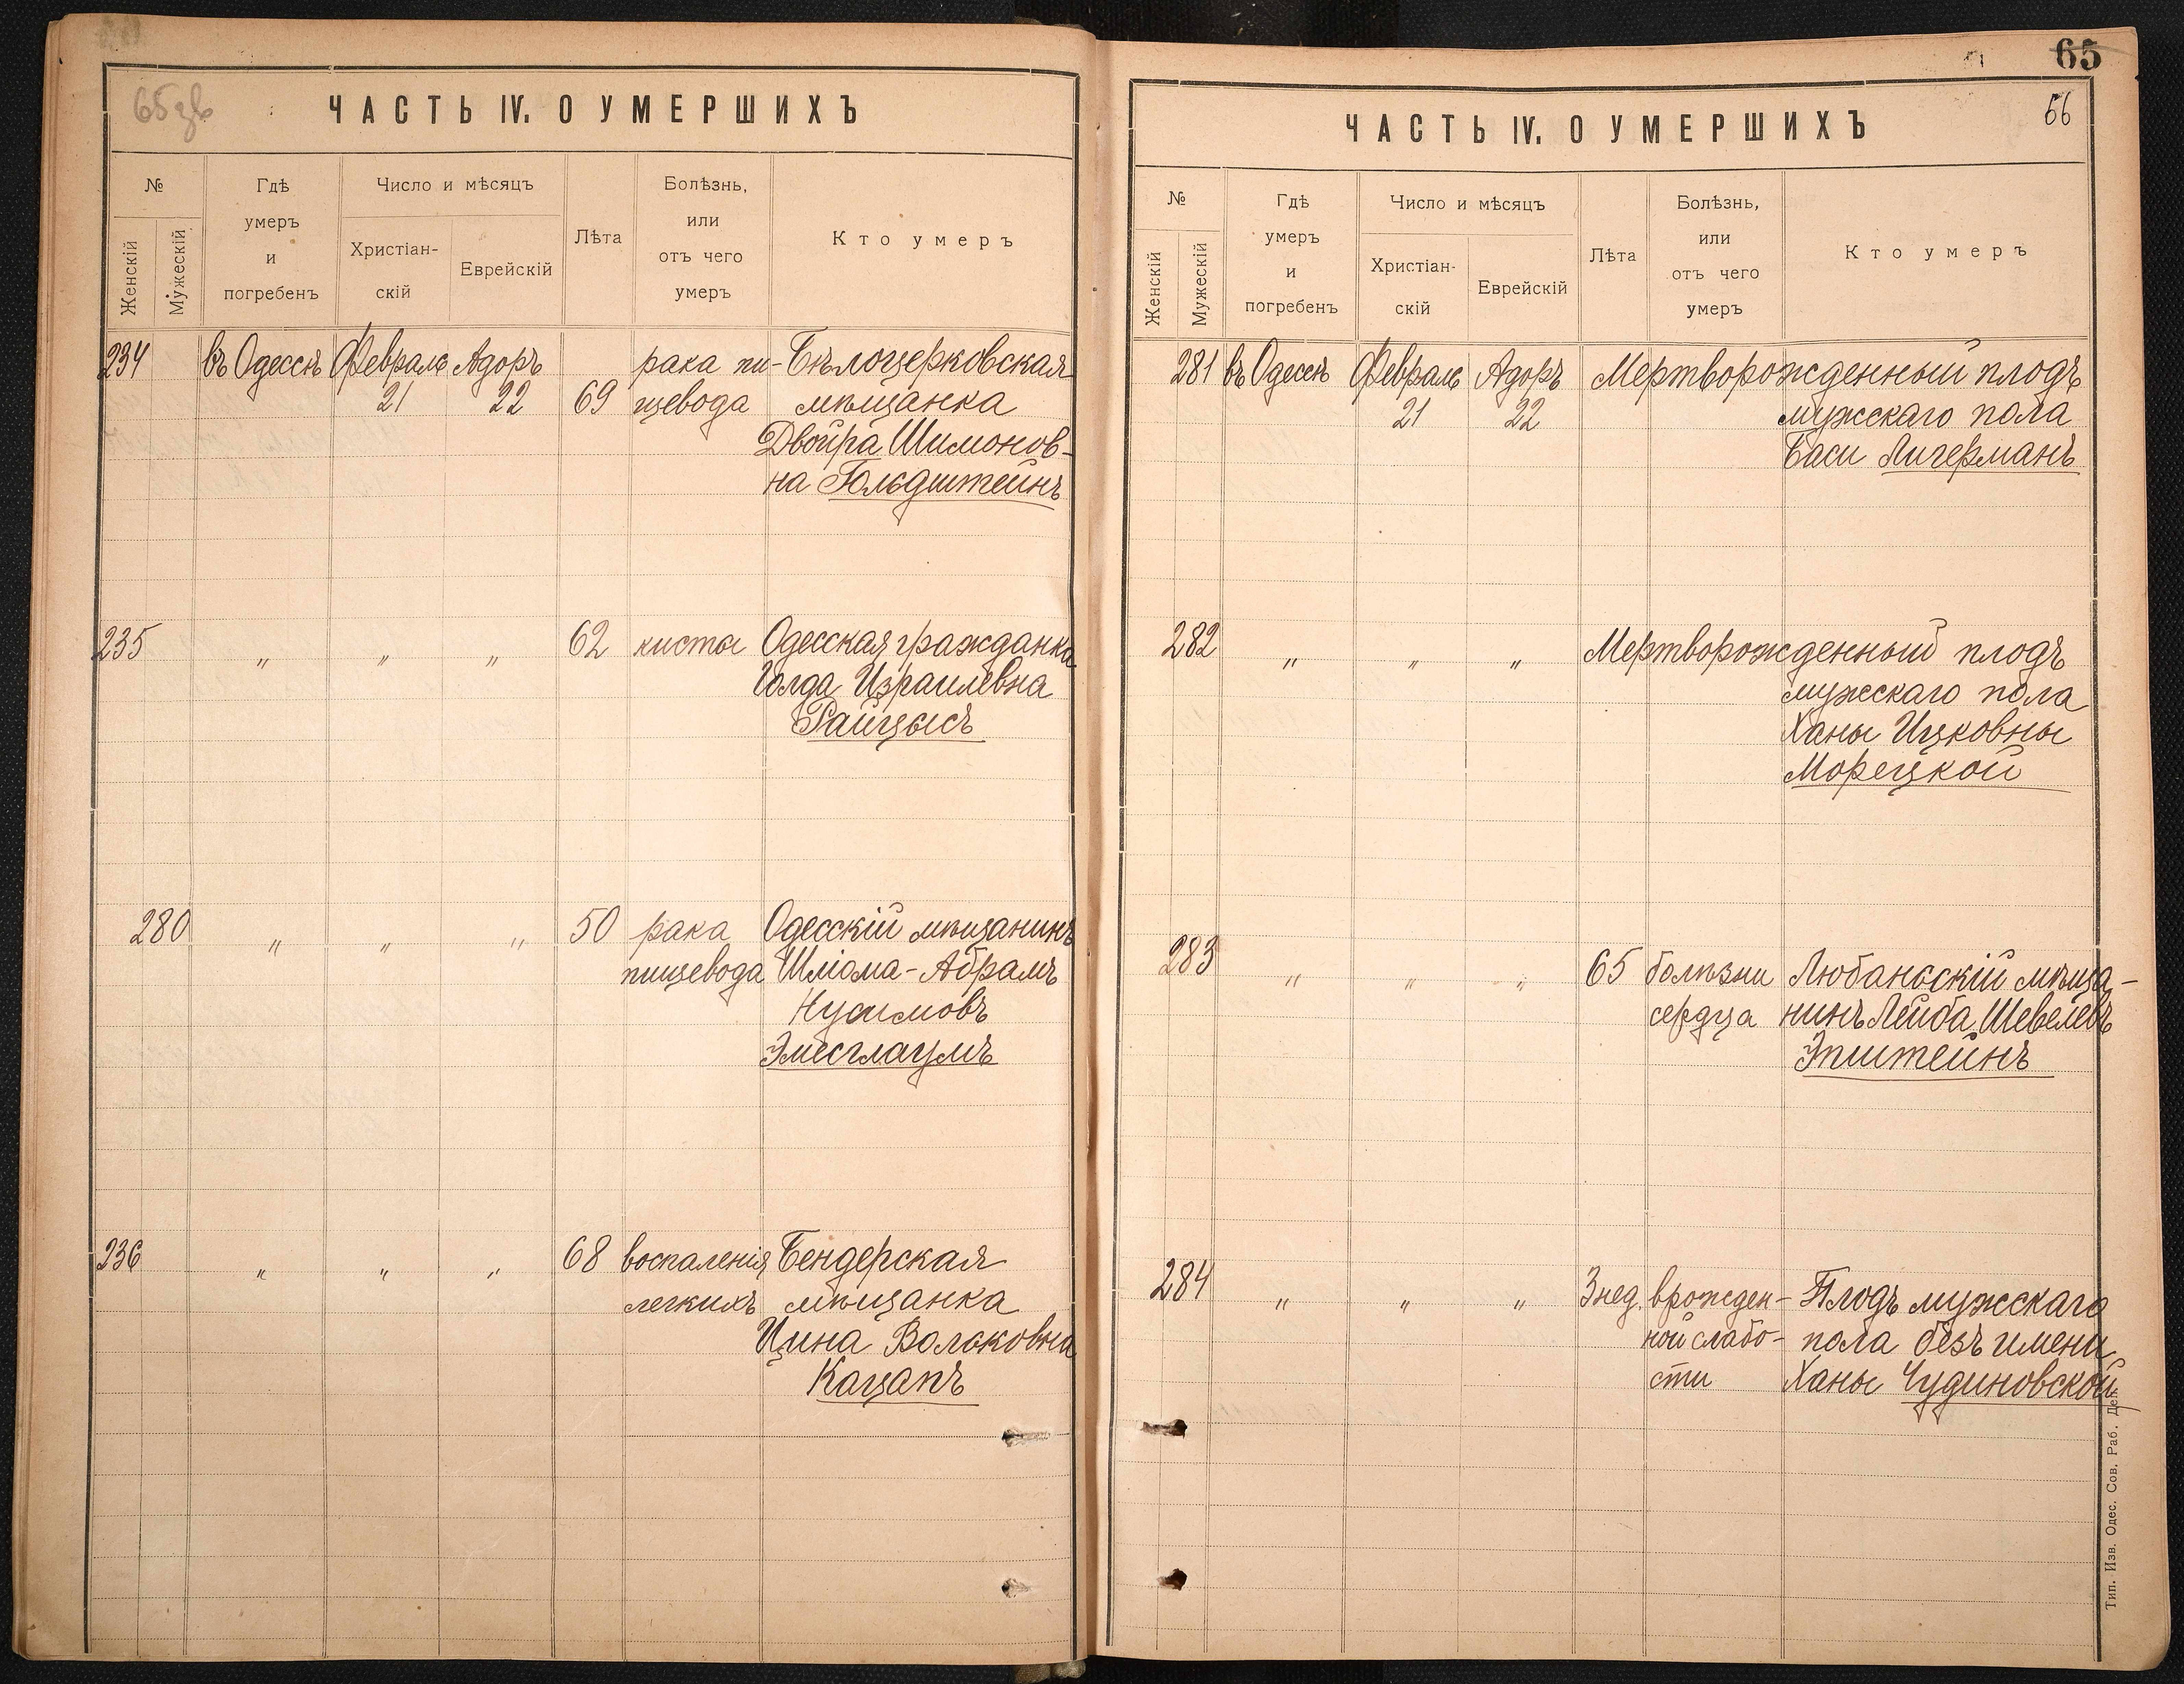 65зв
ЧАСТЬ IV. О УМЕРШИХЪ
№
Женскій
Мужескій
Гдѣ
умеръ
и
погребенъ
Число и мѣсяцъ
Христіан-
скій
Еврейскій
Лѣта
Болѣзнь,
или
отъ чего
умеръ
Кто умеръ
234 въ Одессѣ Февраль Адоръ рака пи- Бѣлоцерковская
21 22 69 щевода мѣщанка
Двойра Шимонов-
на Гольдштейнъ
235 " " " 62 кисты Одесская гражданка
Голда Израилевна
Райцысъ
280 " " " 50 рака Одесскій мѣщанинъ
пищевода Шліома-Абрамъ
Нусимовъ
236 " " " 68 воспаленія Бендерская
легкихъ мѣщанка
Цина Вольковна
Кацапъ
65
66
ЧАСТЬ IV. О УМЕРШИХЪ
№
Женскій
Мужескій
Гдѣ
умеръ
и
погребенъ
Число и мѣсяцъ
Христіан-
скій
Еврейскій
Лѣта
Болѣзнь,
или
отъ чего
умеръ
Кто умеръ
281 въ Одессѣ Февраль Адоръ Мертворожденный плодъ
21 22 мужскаго пола
Баси Лигерманъ
282 " " " Мертворожденный плодъ
мужскаго пола
Ханы Ицковны
Морецкой
283 " " " 65 болѣзни Любаньскій мѣща-
сердца нинъ Лейба Шевелевъ
Эпштейнъ
284 " " " 3 нед. врожден- Плодъ мужскаго
ной слабо- пола безъ имени
сти Ханы Чудиновской
Тип. Изв. Одес. Сов. Раб. Деп.